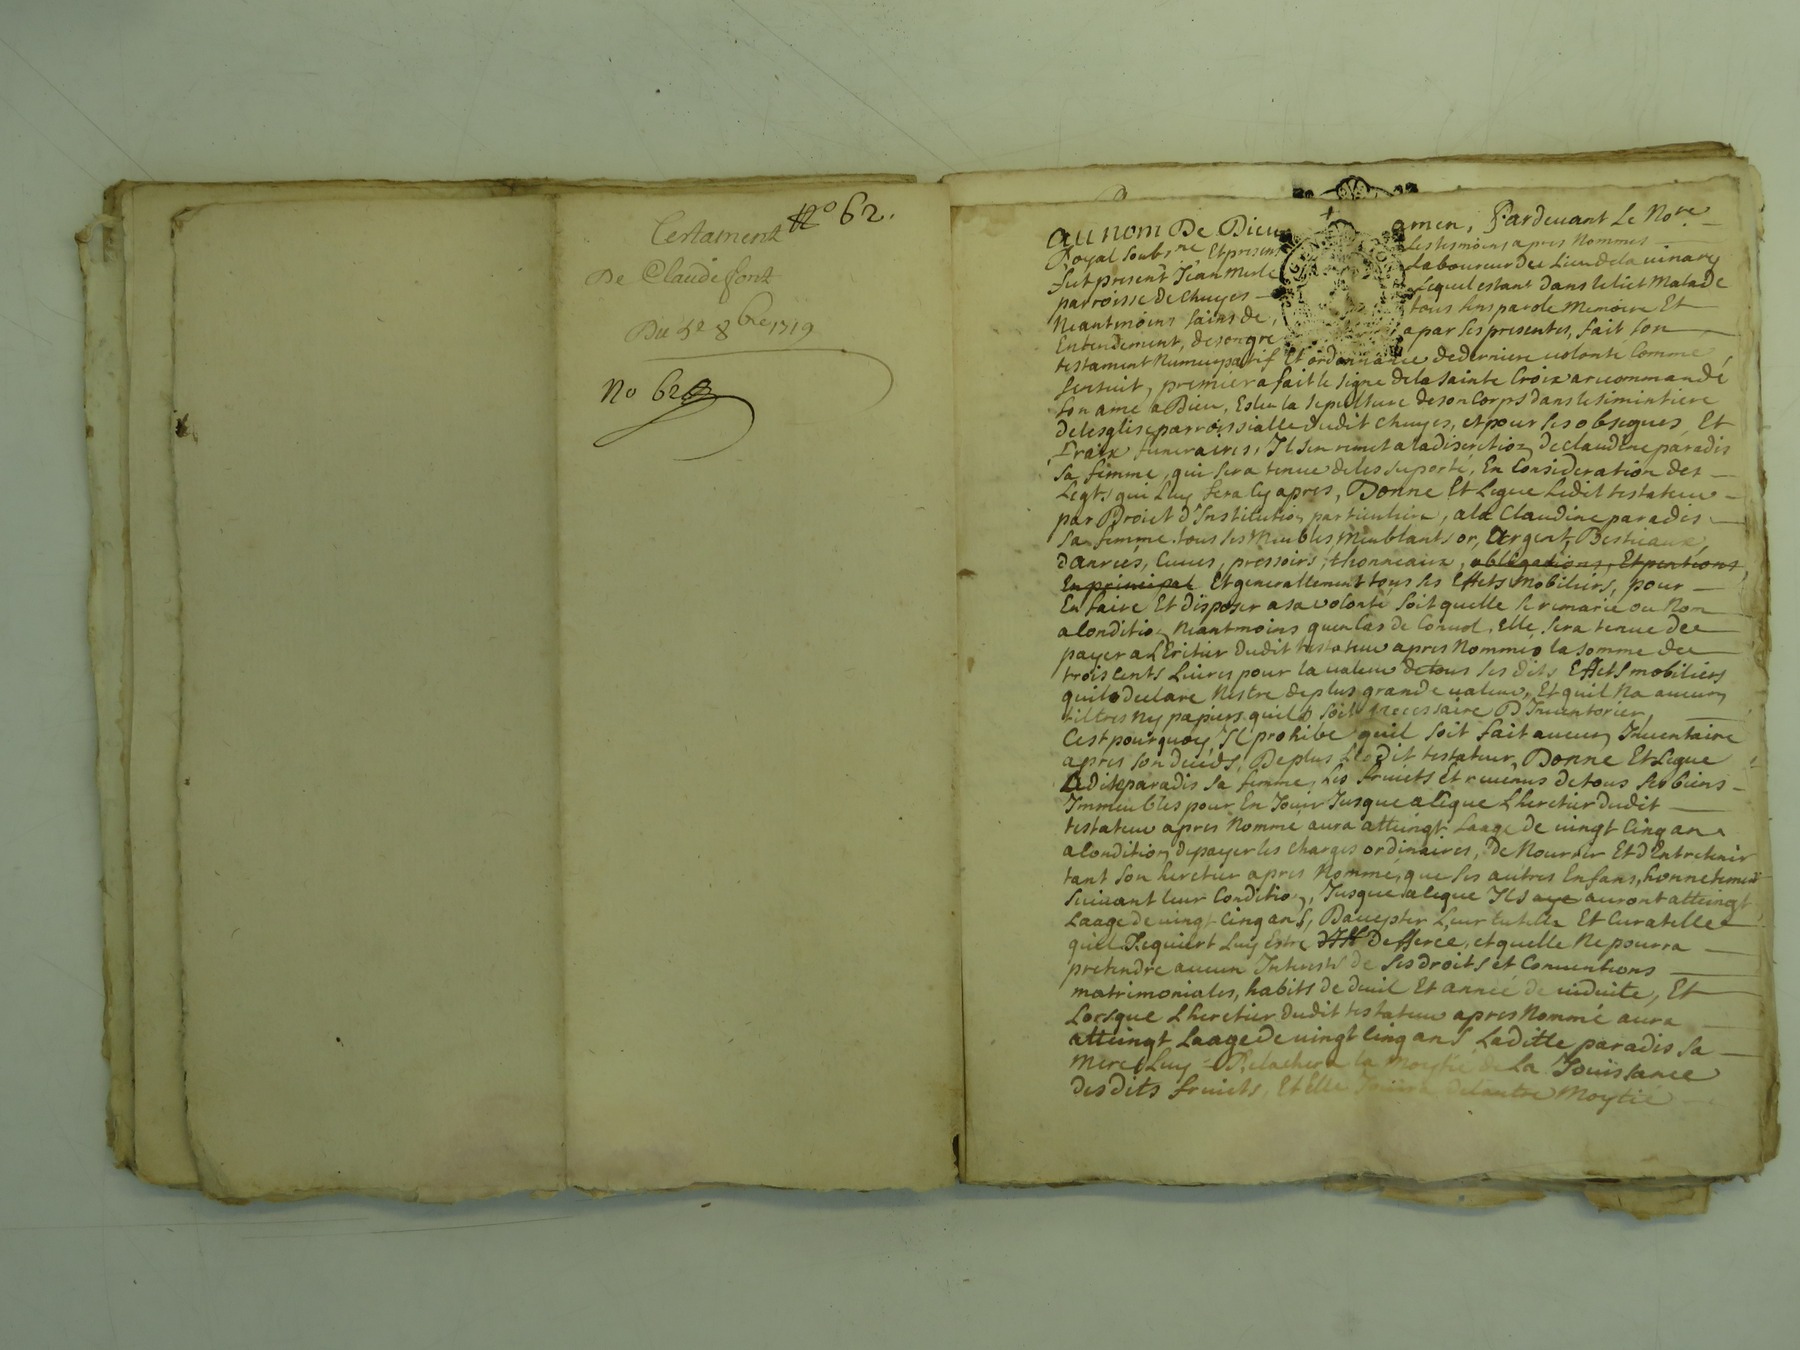 No 62.
Testament
De Claude font
Du 5e 8bre 1719
No 62
au nom De Dieu amen, Pardevant Le Nore
Royal Soubsne Et present Les tesmoins apres Nommes
fut present Jean Merle Laboureur du Lieu de la vinary
parroisse de Chuyes Lequel estant dans le lict Malade
Neantmoins sains de, tous sens parole Memoire Et
Entendement, de son gre a par ses presentes, fait son
testament Numcupatif Et ordonnance de derniere volonte Comme
sensuit, premier a fait le signe de la sainte Croix a recommandé
son ame a Dieu, Eslu la sepulture de son Corps dans le simintiere
de lesglise parroissialle dudit Chuyes, et pour ses obseques Et
fraix funeraires, Il sen remet a la discretion de Claudine paradis
sa femme, qui sera tenue de les suporté, En Consideration des
Legts qui Luy sera Cy apres, Donne Et Legue Ledit testateur
par Droict D'Institution particuliere, a la Claudine paradis
sa femme tous ses Meubles Meublants or, Argent, Bestiaux,
danreés, Cuves, pressoirs, thonneaux, obligations, Et pentions,
En principal Et generallement tous ses Effets Mobiliers, pour
En faire Et disposer a sa volonté soit quelle se remarie ou Non
a Condition Neantmoins quen Cas de Convol, elle sera tenue de
payer a LEritier dudit testateur apres Nommé la somme de
trois Cents Livres pour la valeur de tous ses dits Effets mobiliers
quil declare Nestre de plus grande valeur, Et quil Na aucun
tiltres Ny papiers quil soit Necessaire D Inventorier,
Cest pourquoy, Il prohibe quil soit fait aucun Inventaire
apres son deceds, De plus Ledit testateur, Donne Et Legue
Ladite paradis sa femme, Les fruicts Et revenus de tous ses biens
Immeubles pour En Jouir Jusque a Ceque Lheretier dudit
testateur apres Nommé aura atteingt Laage de vingt Cinq an
a Condition de payer les Charges ordinaires, De Nourrir Et dEntretenir
tant son heretier apres Nommé, que ses autres Enfans, honnetement
suivant leur Condition, Jusque a Ceque Ils aye auront atteingt
Laage de vingt Cinq ans, Daccepter Leur tutelle Et Curatelle
quil Requiert Luy Estre Defferee, et quelle Ne pourra
pretendre aucun Interests de ses droits et Conventions
matrimoniales, habits de deuil Et anneé de viduite, Et
Lorsque Lheretier dudit testateur apres Nommé aura
atteingt Laage de vingt Cinq ans Laditte paradis sa
Mere Luy Relachera la Moytié de La Jouissance
desdits fruicts, Et Elle Jouira de lautre Moytié